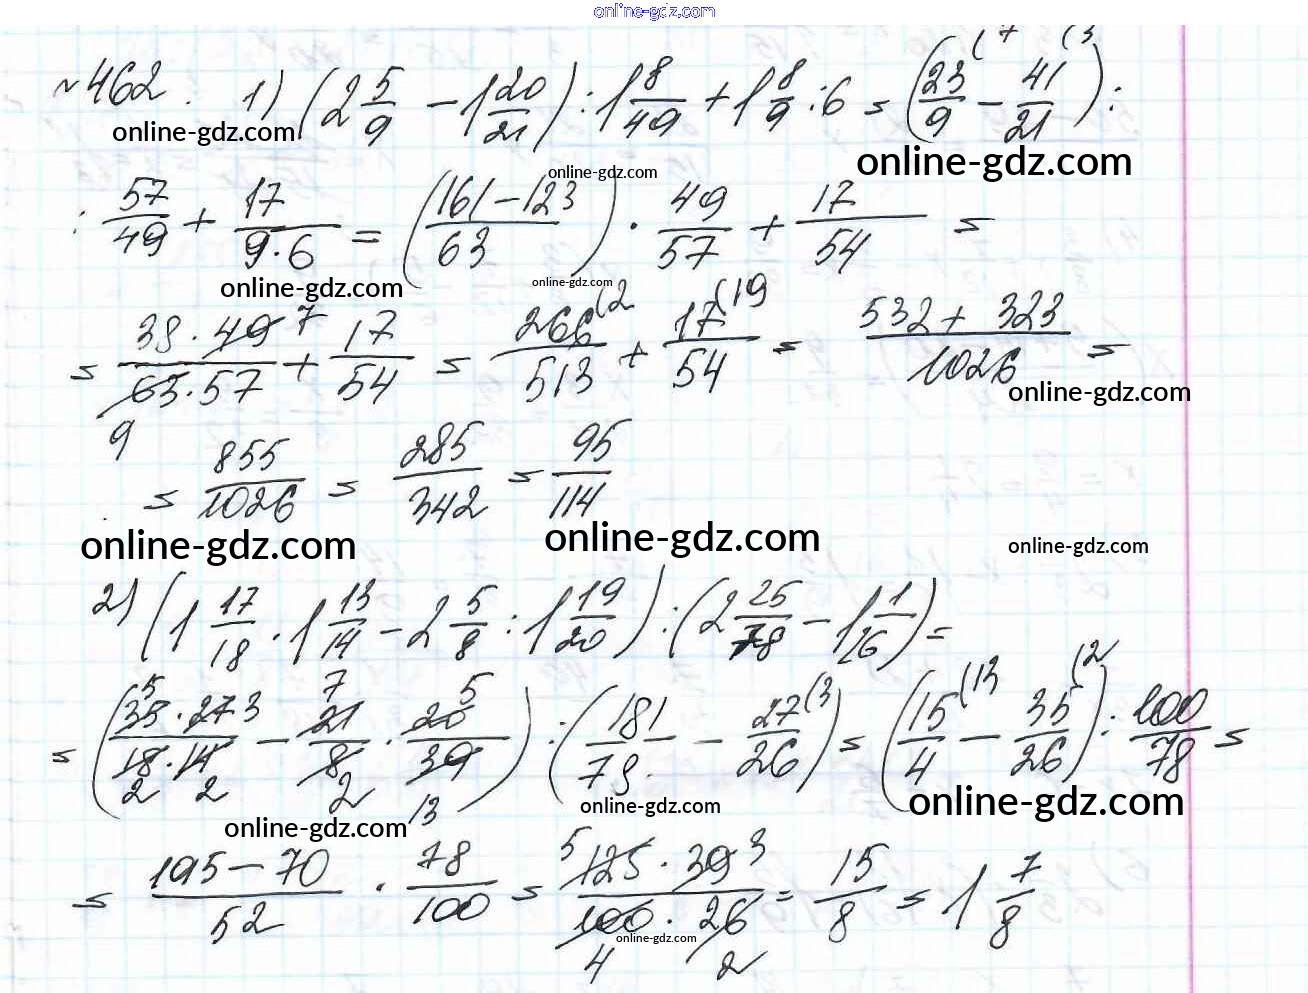 online-gdz.com
№462. 1) (2 5/9 − 1 20/21) : 1 8/49 + 1 8/9 : 6 = (23/9 (7 − 41/21 (3) :
online-gdz.com
online-gdz.com
online-gdz.com
: 57/49 + 17/(9·6) = ((161−123)/63) · 49/57 + 17/54 =
online-gdz.com
online-gdz.com
= (38·49 7)/(63·57 9) + 17/54 = 266/513 (2 + 17/54 (19 = (532 + 323)/1026 =
online-gdz.com
= 855/1026 = 285/342 = 95/114
online-gdz.com
online-gdz.com
online-gdz.com
2) (1 17/18 · 1 13/14 − 2 5/8 : 1 19/20) : (2 25/78 − 1 1/26) =
= ((5 35·27 3)/(18·14 2 2) − 7 21/8 2 · 20 5/39 13) : (181/78 − 27/26 (3) = (15/4 (13 − 35/26 (2) : 100/78 =
online-gdz.com
online-gdz.com
online-gdz.com
= (195−70)/52 · 78/100 = (5 125·39 3)/(100·26 4 2) = 15/8 = 1 7/8
online-gdz.com